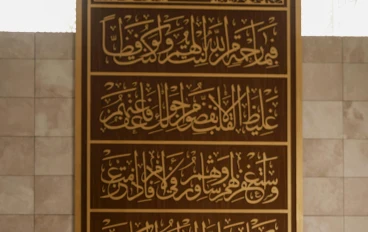 فبما رحمة من الله لنت لهم ولو كنت فظا
غليظ القلب لانفضوا من حولك فاعف عنهم
واستغفر لهم وشاورهم في الأمر فإذا عزمت